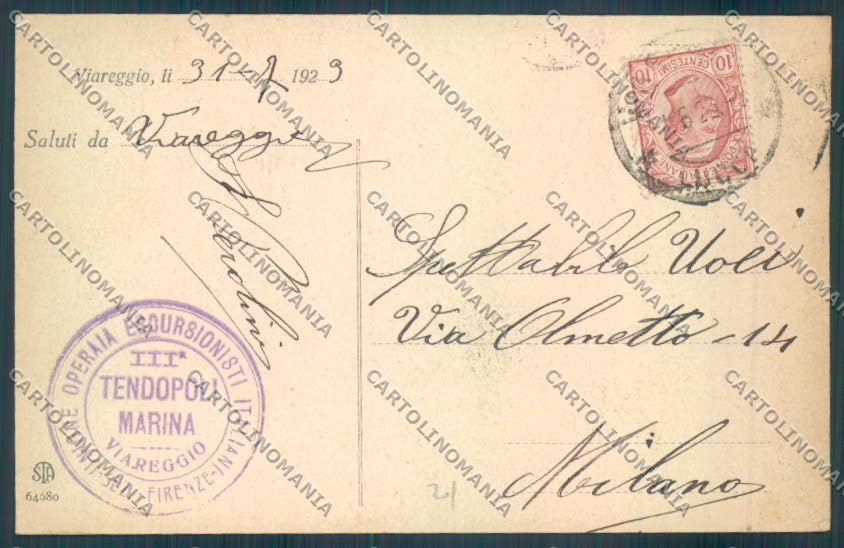 Viareggio, li 31-7 1923
Saluti da Viareggio
Spettabile Uoei
Via Olmetto - 14
Milano
10 CENTESIMI 10
UNIONE OPERAIA ESCURSIONISTI ITALIANI
SEZ. FIRENZE
IIIª
TENDOPOLI
MARINA
VIAREGGIO
STA
64680
CARTOLINOMANIA